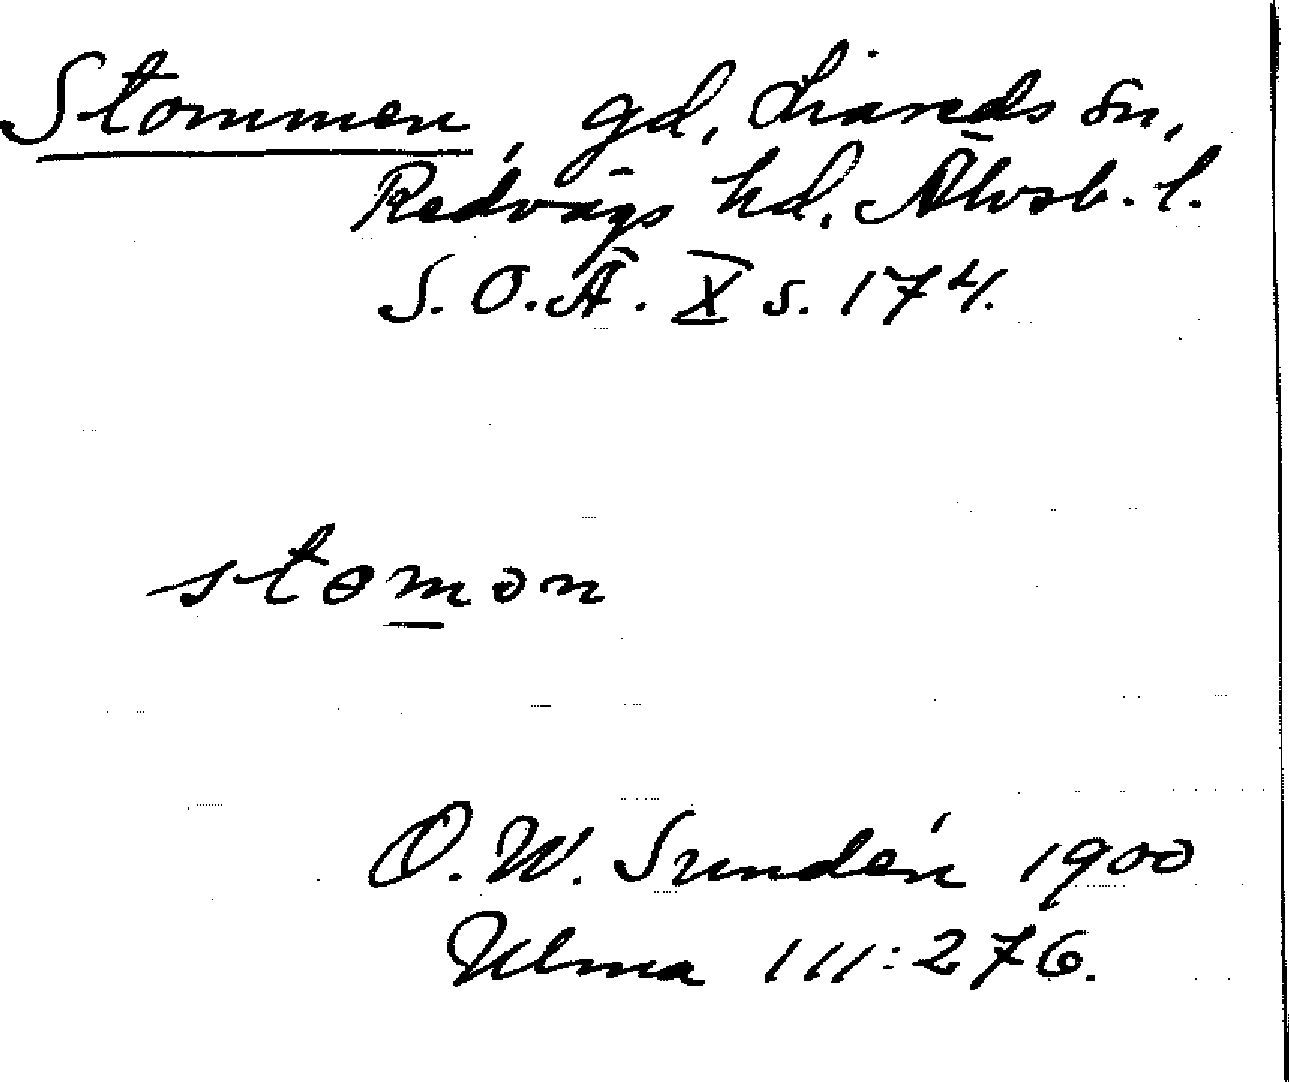 Stommen, gd, Liareds sn,
Redvägs hd. Älvsb. l.
S. O. Ä. X s. 174.
stomən
O. W. Sundén 1900
Ulma 111:276.